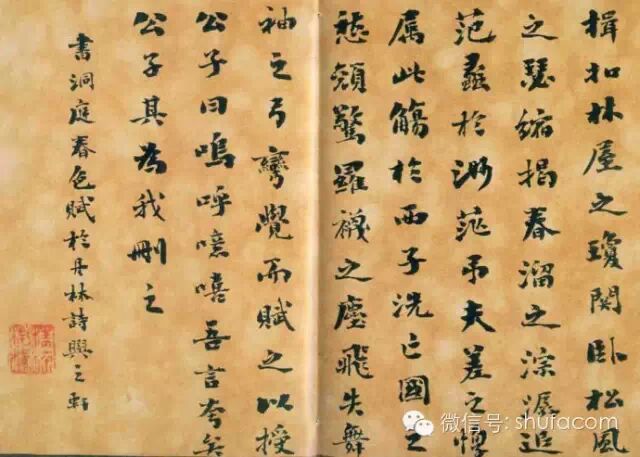 楫扣林屋之瓊関卧松風
之瑟縮揭春溜之淙潺追
范蠡於渺茫吊夫差之惸
属此觴於西子洗亡國之
愁顏驚羅襪之塵飛失舞
袖之弓彎覺而賦之以授
公子曰嗚呼噫嘻吾言夸矣
公子其為我刪之
書洞庭春色賦於丹林詩興之軒
微信号: shufacom